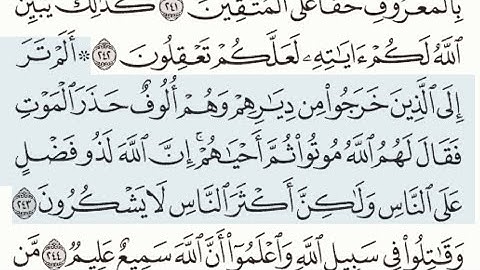 بِالْمَعْرُوفِ حَقًّا عَلَى الْمُتَّقِينَ ٢٤١ كَذَٰلِكَ يُبَيِّنُ
اللَّهُ لَكُمْ ءَايَاتِهِ لَعَلَّكُمْ تَعْقِلُونَ ٢٤٢ * أَلَمْ تَرَ
إِلَى الَّذِينَ خَرَجُوا مِن دِيَارِهِمْ وَهُمْ أُلُوفٌ حَذَرَ الْمَوْتِ
فَقَالَ لَهُمُ اللَّهُ مُوتُوا ثُمَّ أَحْيَاهُمْ ۚ إِنَّ اللَّهَ لَذُو فَضْلٍ
عَلَى النَّاسِ وَلَٰكِنَّ أَكْثَرَ النَّاسِ لَا يَشْكُرُونَ ٢٤٣
وَقَاتِلُوا فِي سَبِيلِ اللَّهِ وَاعْلَمُوا أَنَّ اللَّهَ سَمِيعٌ عَلِيمٌ ٢٤٤ مَّن